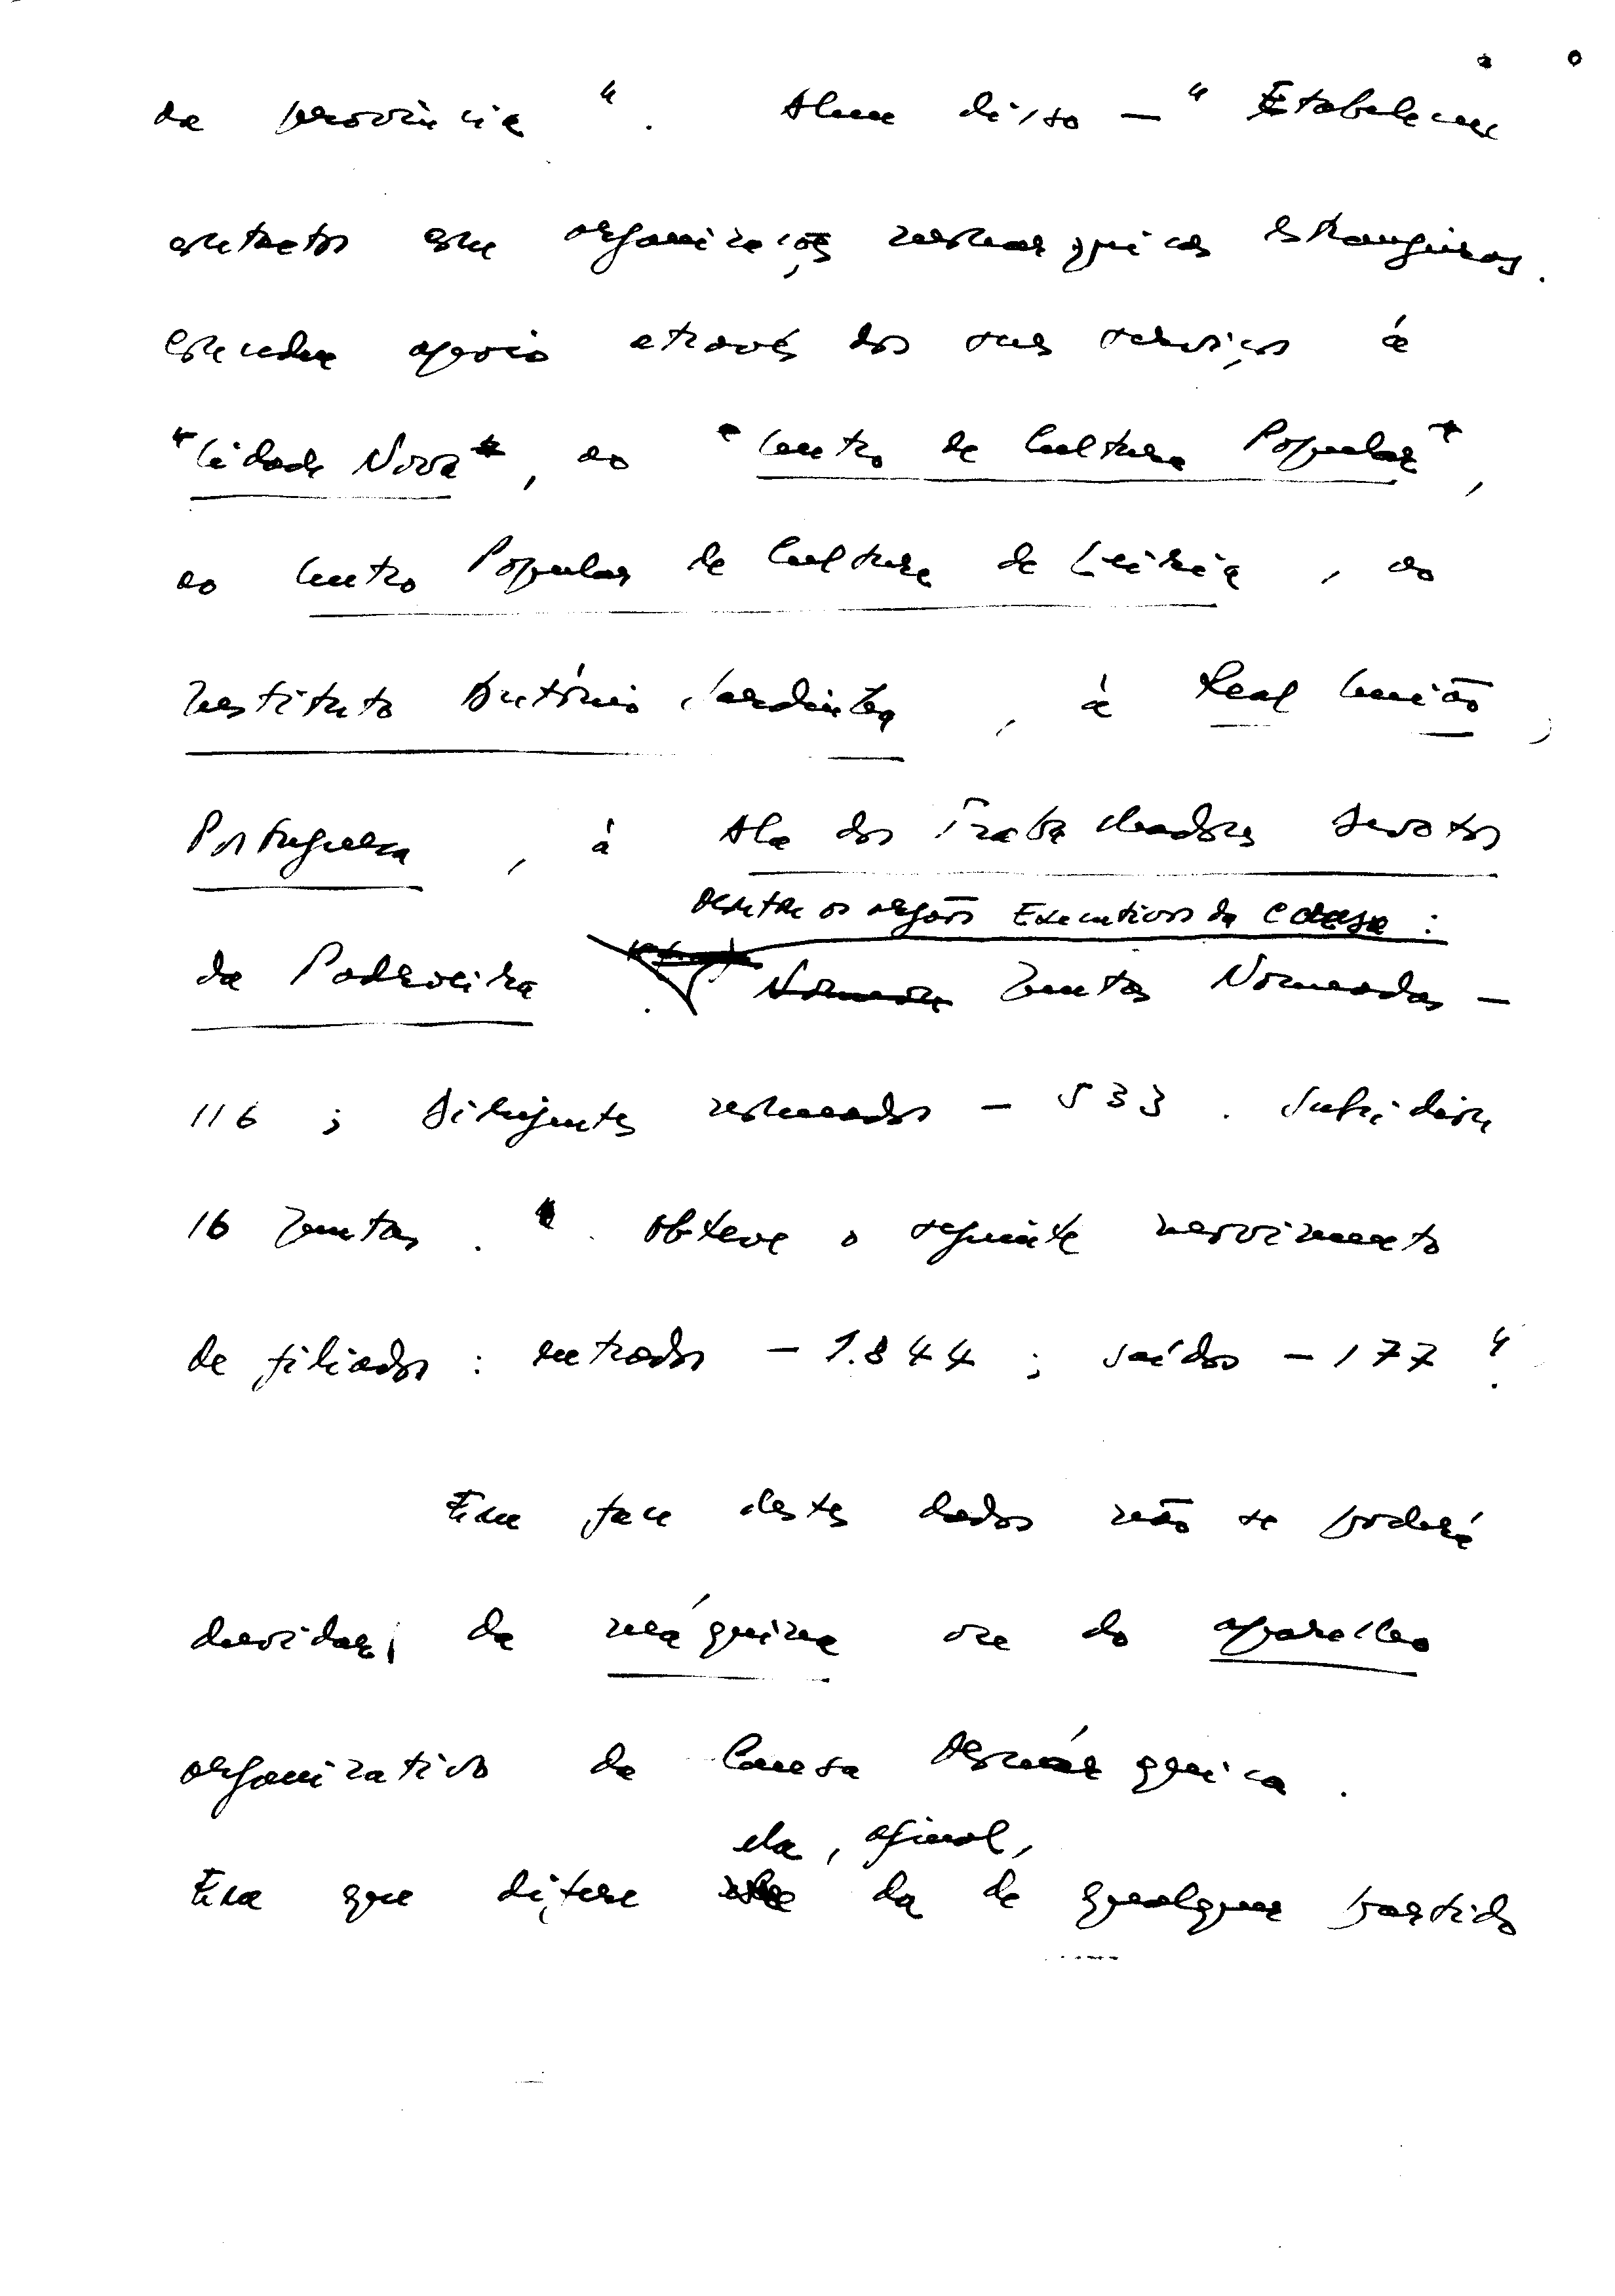 da província". Alem disso — "Estabeleceu
contactos com organizações monarquicas estrangeiras.
Concedeu apoio através dos seus serviços à
"Cidade Nova", ao "Centro de Cultura Popular",
ao Centro Popular de Cultura de Leiria, ao
Instituto António Sardinha, à Real União,
Portuguesa, à Ala dos Trabalhadores Devotos
os orgãos Executivos da Causa :
da Padroeira. Juntas Nomeadas —
116 ; Dirigentes nomeados — 533. Subsidiou
16 Juntas. Obteve o seguinte movimento
de filiados : entrados — 1.844 ; saídos — 177".
Em face destes dados não se poderá
duvidar, da máquina ou do aparelho
organizativo da Causa Monárquica.
ela, afinal,
Em que difere da de qualquer partido